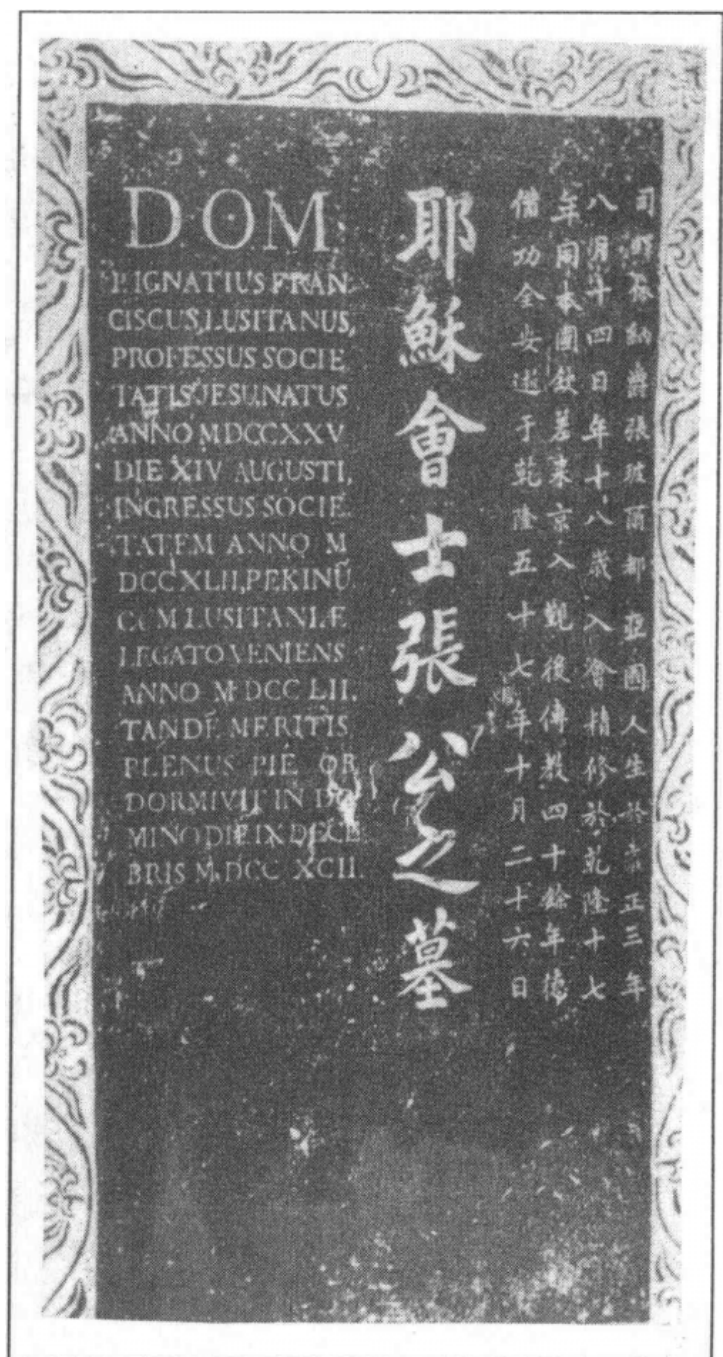 D·O·M
P. IGNATIUS FRAN
CISCUS, LUSITANUS,
PROFESSUS SOCIE
TATIS JESU, NATUS
ANNO MDCCXXV
DIE XIV AUGUSTI,
INGRESSUS SOCIE
TATEM ANNO M
DCCXLII, PEKINŪ
CUM LUSITANIÆ
LEGATO VENIENS
ANNO MDCCLII.
TANDĒ MERITIS
PLENUS PIE OB
DORMIVIT IN DO
MINO DIE IX DECĒ
BRIS MDCC XCII.
耶穌會士張公之墓
司鐸依納爵張玻爾都亞國人生於雍正三年
八月十四日年十八歲入會精修於乾隆十七
年同本國欽差來京入覲後傳教四十餘年德
備功全安逝于乾隆五十七年十月二十六日